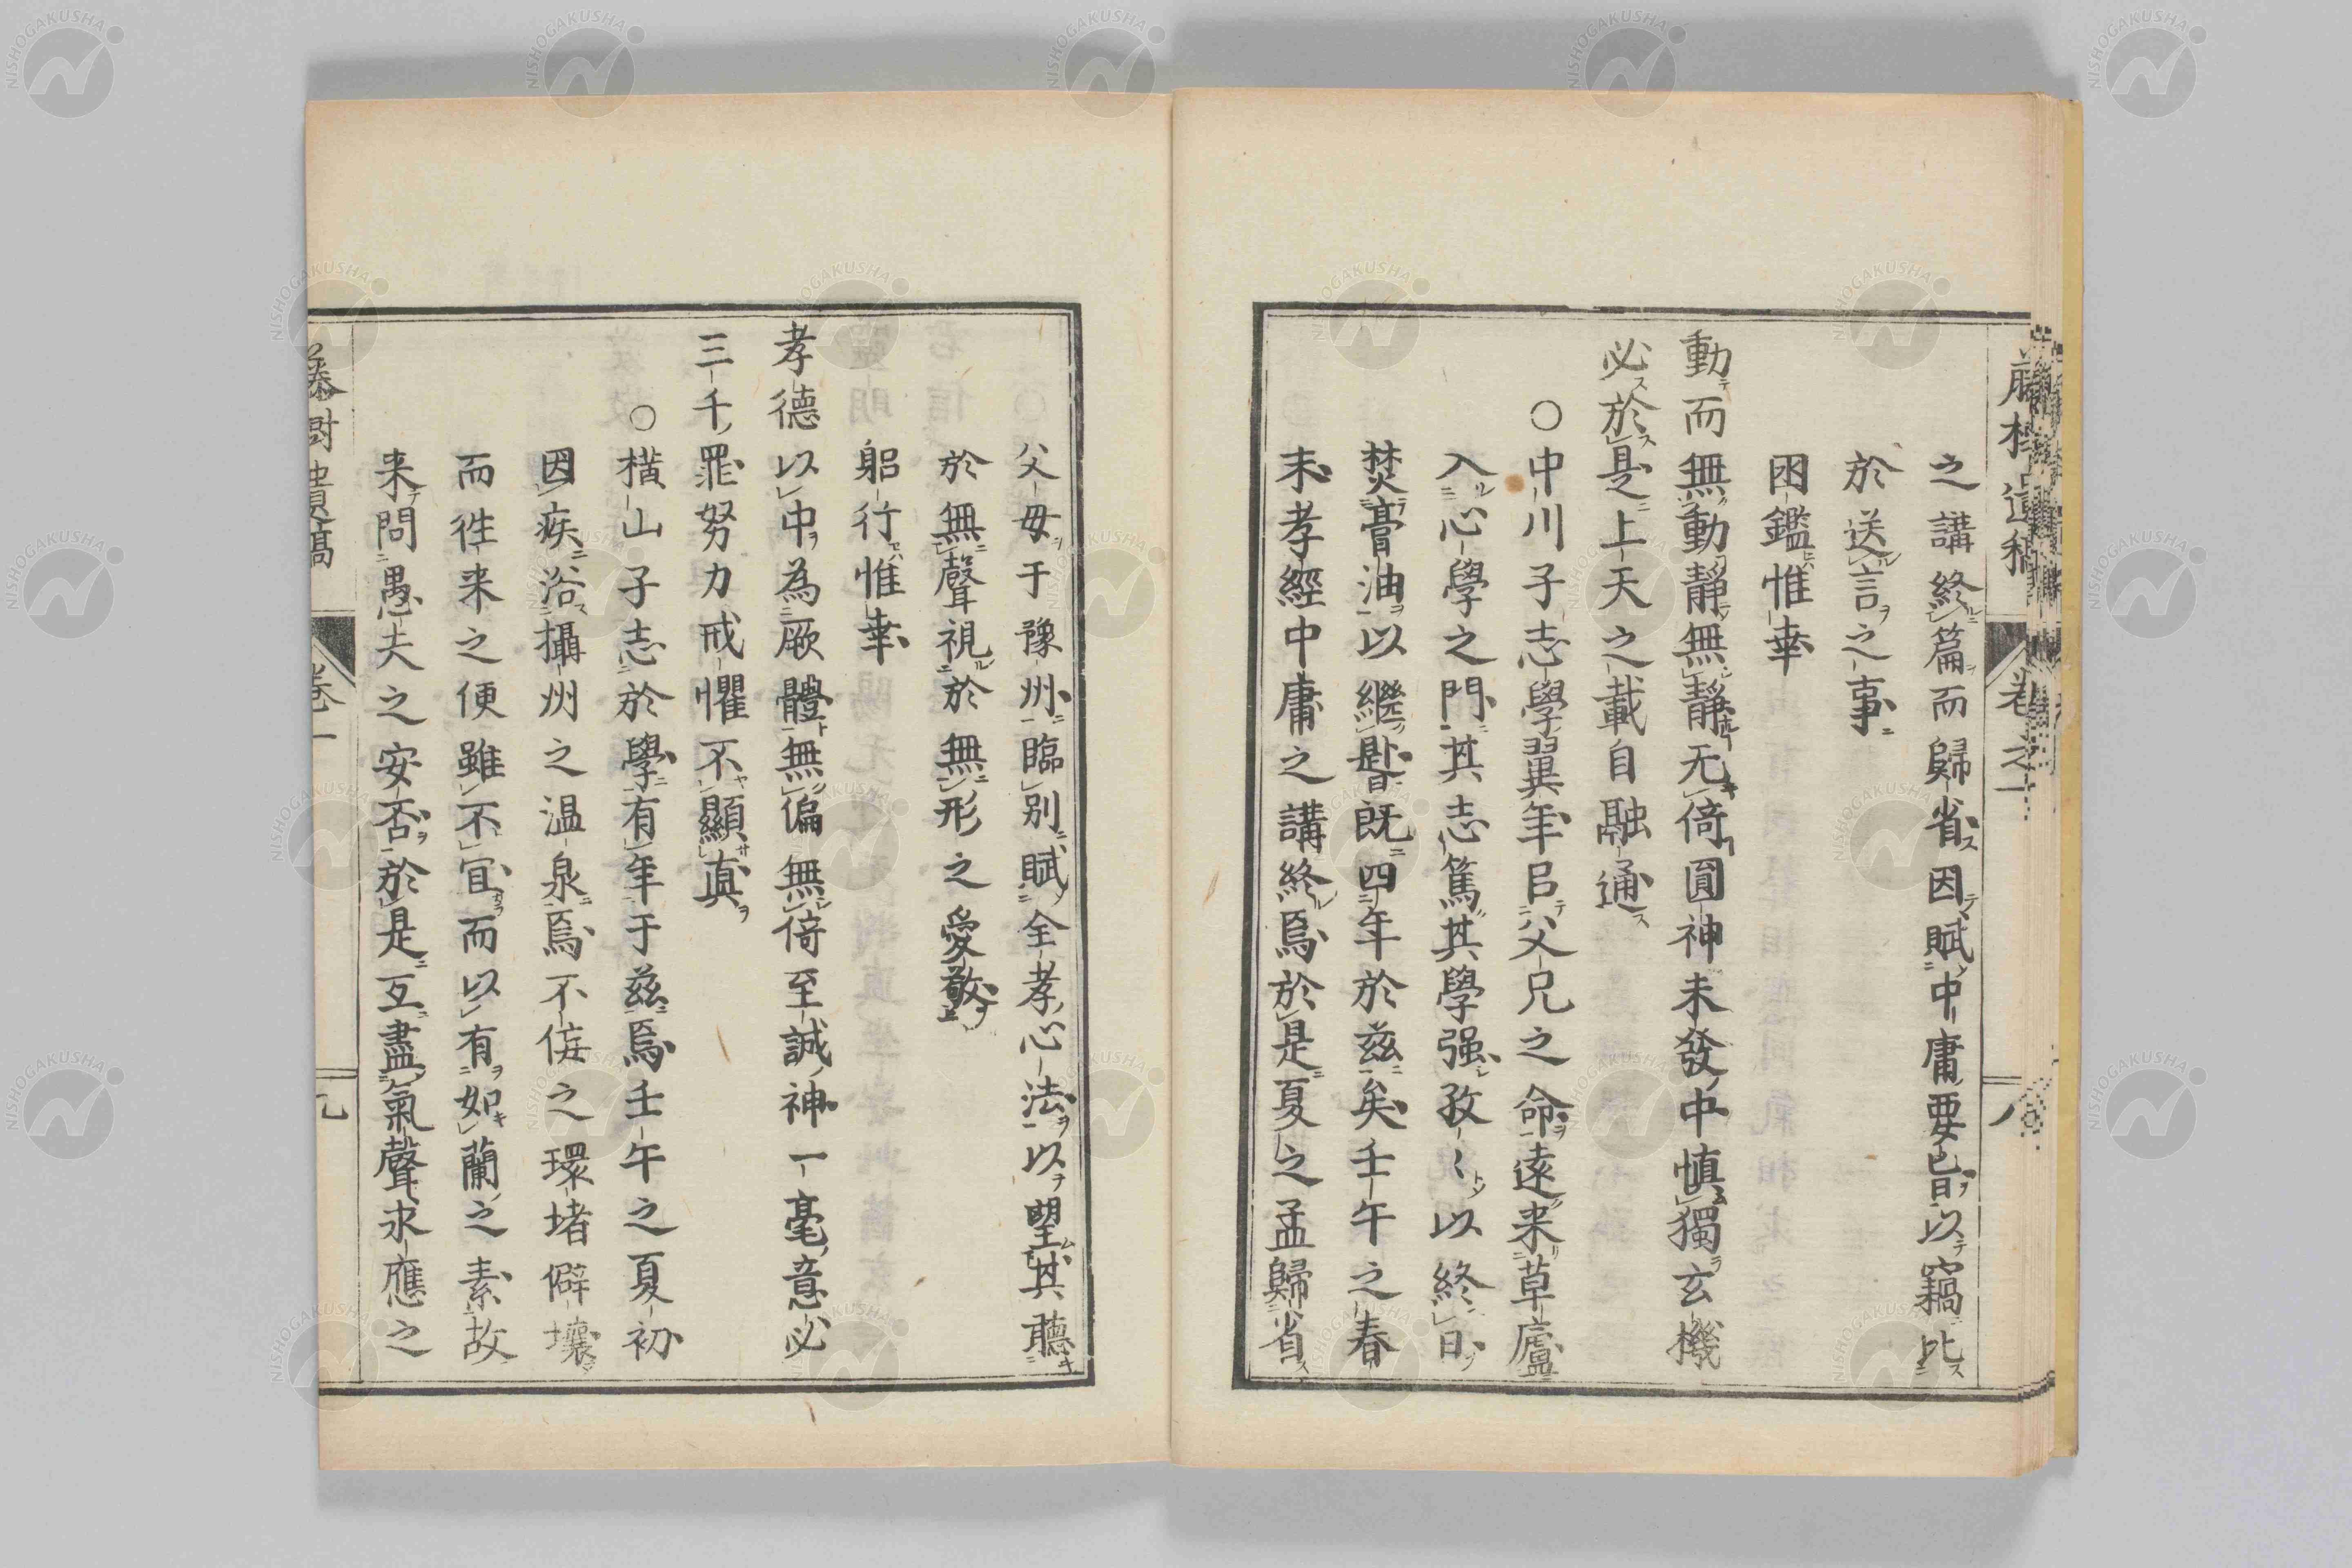 之講終篇而歸省因賦中庸要旨以竊比
於送言之事
困鑑惟幸
動而無動靜無靜无倚圓神未發中慎獨玄機
必於是上天之載自融通
○中川子志學翼年㠯父兄之命遠来草廬
入心學之門其志篤其學强孜〻以終日
焚膏油以繼晷既四年於茲矣壬午之春
末孝經中庸之講終焉於是夏之孟歸省
卷之一
八
父母于豫州臨別賦全孝心法以望其聽
於無聲視於無形之愛敬
躬行惟幸
孝德以中為厥體無偏無倚至誠神一毫意必
三千罪努力戒懼不顯真
○橫山子志於學有年于茲焉壬午之夏初
因疾浴攝州之温泉焉不倦之環堵僻壤
而徃来之便雖不宜而以有如蘭之素故
来問愚夫之安否於是互盡氣聲求應之
藤樹遺稿
卷一
九
NISHOGAKUSHA